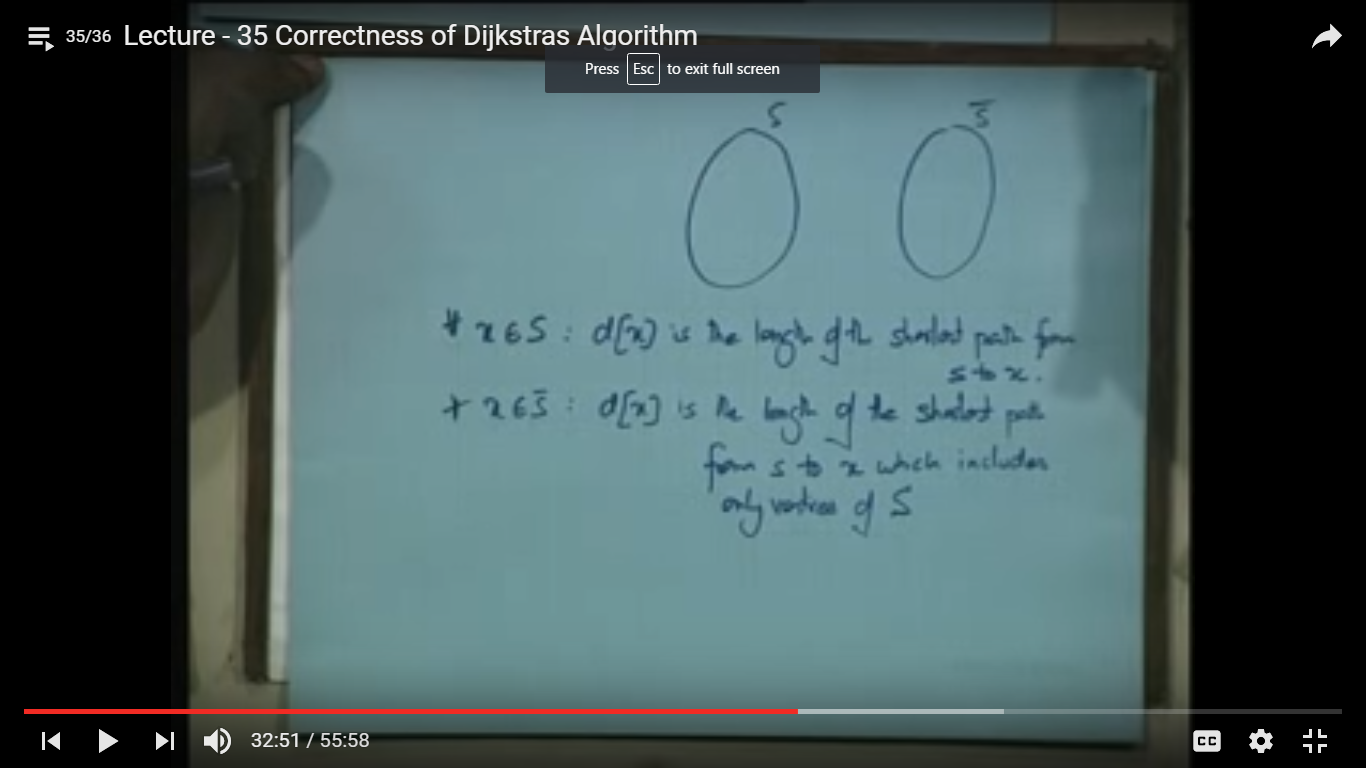 35/36 Lecture - 35 Correctness of Dijkstras Algorithm
Press Esc to exit full screen
S S̄
* x∈S : d[x] is the length of the shortest path from
s to x.
* x∈S̄ : d[x] is the length of the shortest path
from s to x which includes
only vertices of S
32:51 / 55:58 CC